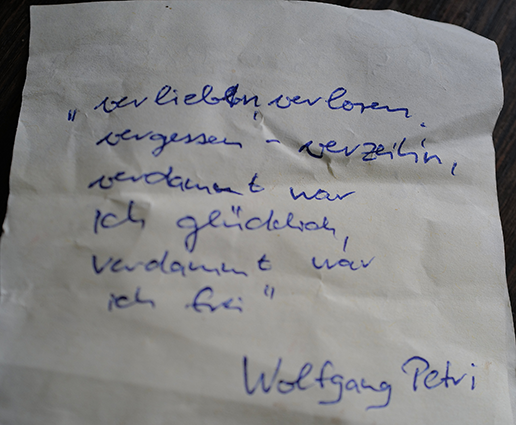 "verlieben, verloren.
vergessen – verzeihn,
verdammt war
ich glücklich,
verdammt war
ich frei"
Wolfgang Petri